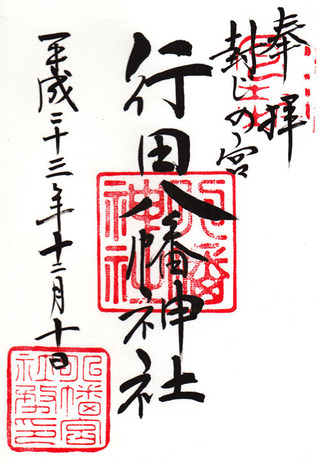 奉拝
封じの宮
行田八幡神社
平成二十三年十二月十日
八幡神社
八幡宮社務所印